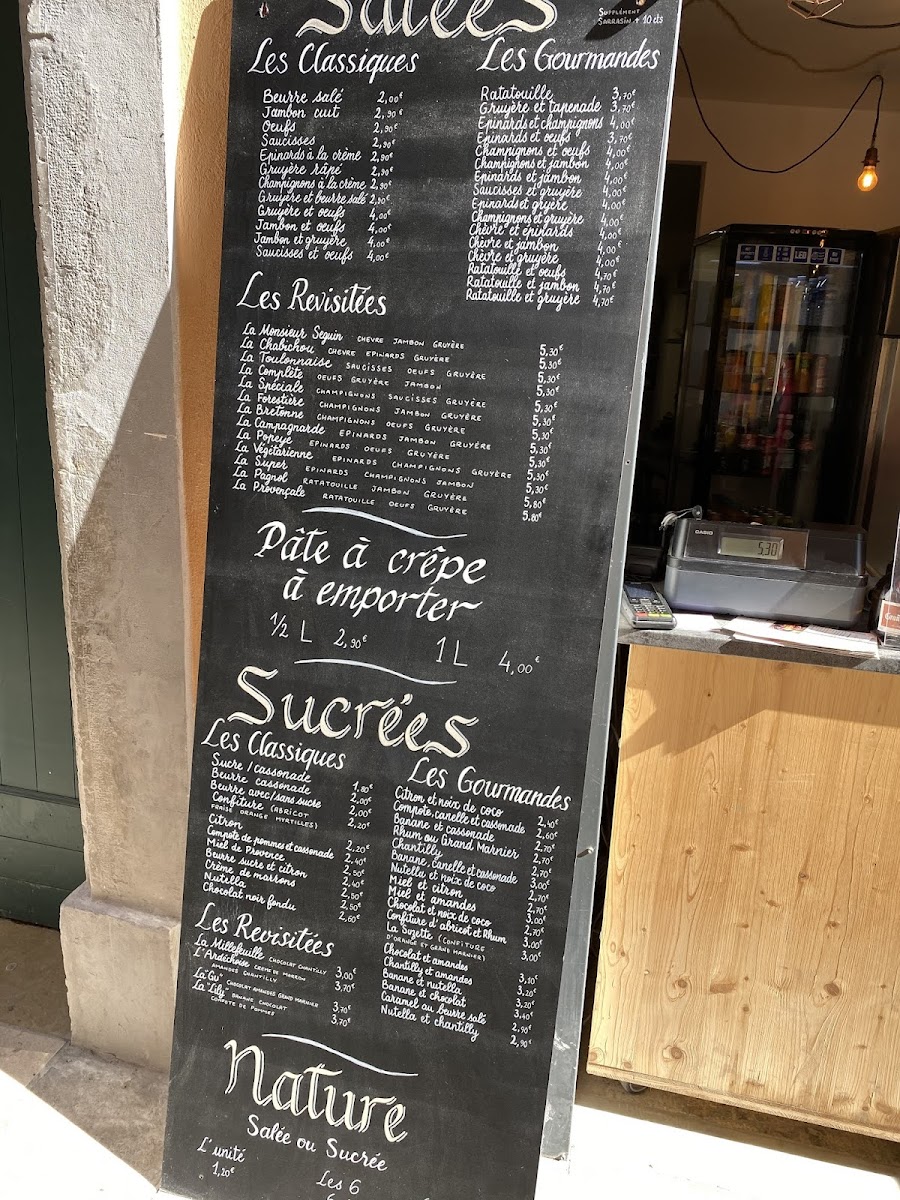 Salées
Supplément
Sarrasin + 10 cts
Les Classiques
Beurre salé 2,00€
Jambon cuit 2,90€
Oeufs 2,90€
Saucisses 2,90€
Epinards à la crème 2,90€
Gruyère râpé 2,90€
Champignons à la crème 2,90€
Gruyère et beurre salé 2,90€
Gruyère et oeufs 4,00€
Jambon et oeufs 4,00€
Jambon et gruyère 4,00€
Saucisses et oeufs 4,00€
Les Gourmandes
Ratatouille 3,70€
Gruyère et tapenade 3,70€
Epinards et champignons 4,00€
Epinards et oeufs 3,70€
Champignons et oeufs 4,00€
Champignons et jambon 4,00€
Epinards et jambon 4,00€
Saucisses et gruyère 4,00€
Epinards et gryère 4,00€
Champignons et gruyère 4,00€
Chèvre et epinards 4,00€
Chèvre et jambon 4,00€
Chèvre et gruyère 4,00€
Ratatouille et oeufs 4,70€
Ratatouille et jambon 4,70€
Ratatouille et gruyère 4,70€
Les Revisitées
La Monsieur Seguin CHEVRE JAMBON GRUYÈRE 5,30€
La Chabichou CHEVRE EPINARDS GRUYÈRE 5,30€
La Toulonnaise SAUCISSES OEUFS GRUYÈRE 5,30€
La Complète OEUFS GRUYÈRE JAMBON 5,30€
La Spéciale CHAMPIGNONS SAUCISSES GRUYÈRE 5,30€
La Forestière CHAMPIGNONS JAMBON GRUYÈRE 5,30€
La Bretonne CHAMPIGNONS OEUFS GRUYÈRE 5,30€
La Campagnarde EPINARDS JAMBON GRUYÈRE 5,30€
La Popeye EPINARDS OEUFS GRUYÈRE 5,30€
La Végétarienne EPINARDS CHAMPIGNONS GRUYÈRE 5,30
La Super EPINARDS CHAMPIGNONS JAMBON 5,30€
La Pagnol RATATOUILLE JAMBON GRUYÈRE 5,80€
La Provençale RATATOUILLE OEUFS GRUYÈRE 5,80€
Pâte à crêpe
à emporter
1/2 L 2,90€ 1L 4,00€
Sucrées
Les Classiques
Sucre / cassonade 1,80€
Beurre cassonade 2,00€
Beurre avec/sans sucre 2,00€
Confiture (ABRICOT 2,20€
FRAISE ORANGE MYRTILLES)
Citron 2,20€
Compote de pommes et cassonade 2,40€
Miel de Provence 2,50€
Beurre sucre et citron 2,40€
Crème de marrons 2,50€
Nutella 2,50€
Chocolat noir fondu 2,60€
Les Revisitées
La Millefeuille CHOCOLAT CHANTILLY 3,00€
L'Ardéchoise CREME DE MARRON 3,70€
AMANDES CHANTILLY
La "Gu" CHOCOLAT AMANDES GRAND MARNIER 3,70€
La "Lily" BANANE CHOCOLAT 3,70€
COMPOTE DE POMMES
Les Gourmandes
Citron et noix de coco 2,40€
Compote, canelle et cassonade 2,60€
Banane et cassonade 2,70€
Rhum ou Grand Marnier 2,70€
Chantilly
Banane, canelle et cassonade 3,00€
Nutella et noix de coco 2,70€
Miel et citron 2,70€
Miel et amandes 3,00€
Chocolat et noix de coco 2,70€
Confiture d'abricot et Rhum 3,00€
La Suzette (CONFITURE 3,00€
D'ORANGE ET GRAND MARNIER)
Chocolat et amandes 3,10€
Chantilly et amandes 3,20€
Banane et nutella 3,20€
Banane et chocolat 3,40€
Caramel au beurre salé 2,90€
Nutella et chantilly 2,90€
Nature
Salée ou Sucrée
L'unité
1,20€
Les 6
CASIO
5.30